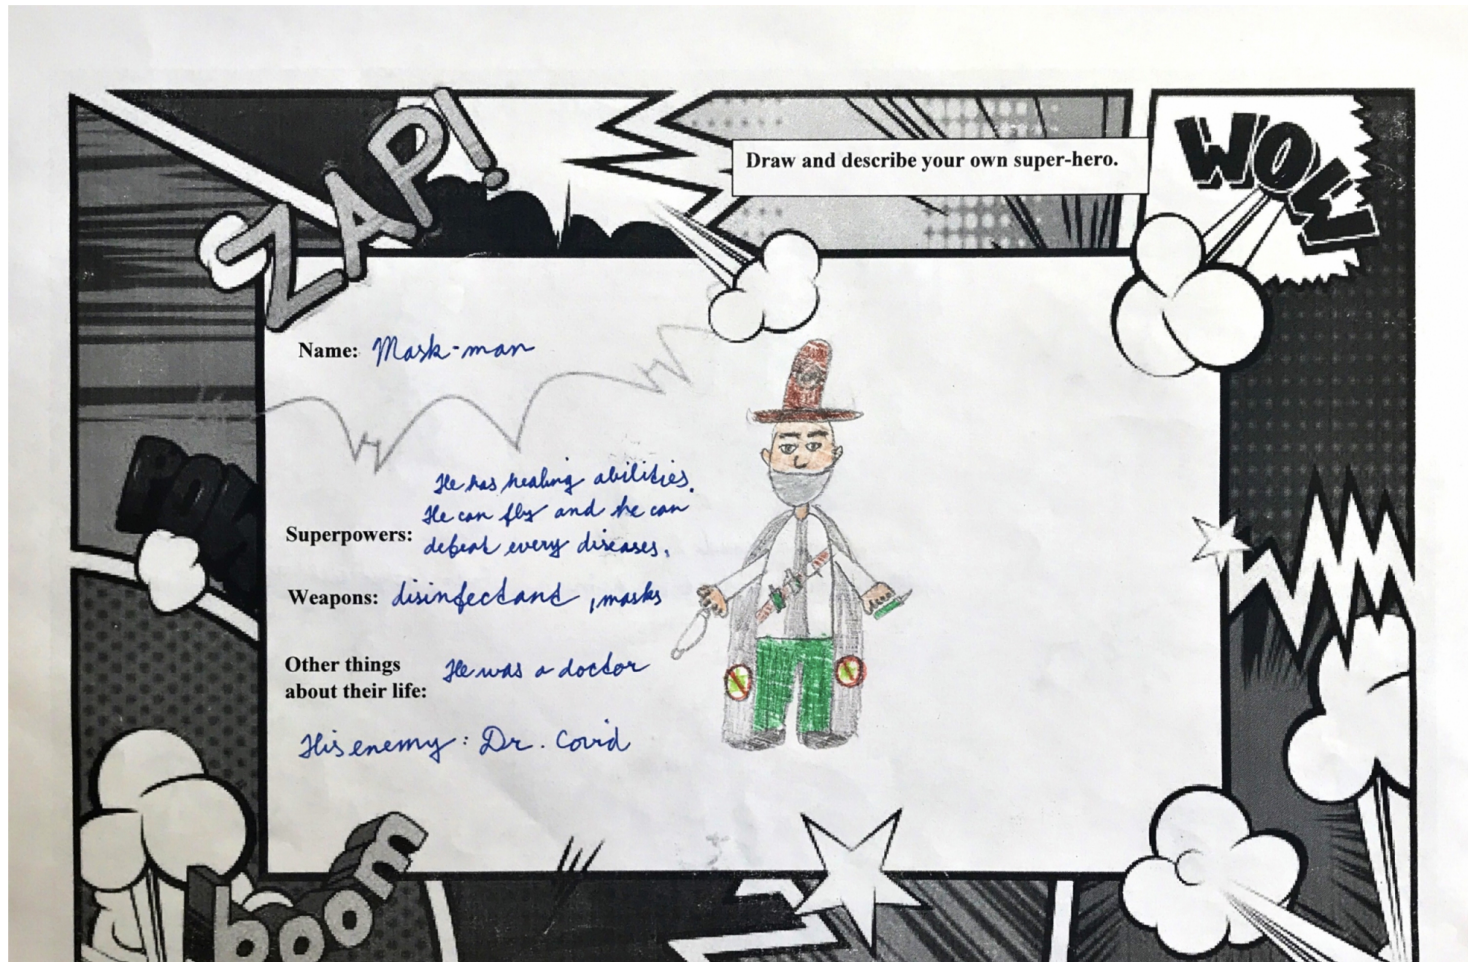 ZAP!
Draw and describe your own super-hero.
WOW
Name: Mask-man
POW
He has healing abilities.
He can fly and he can
Superpowers: defeat every diseases.
Weapons: disinfectand, masks
Other things about their life: He was a doctor
His enemy: Dr. Covid
boom